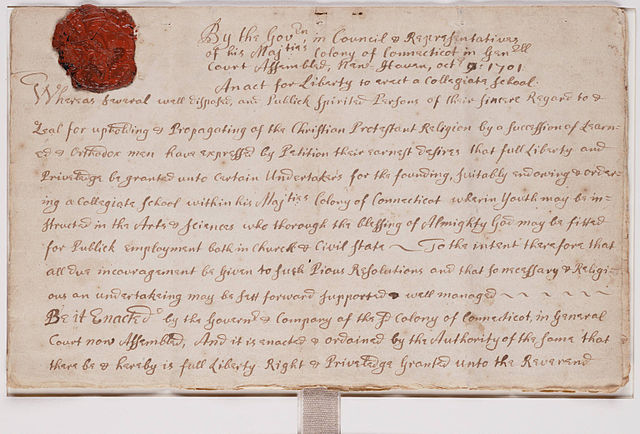 By the Govᵉⁿ in Council & Representatives
of his Majties Colony of Connecticot in Genˡˡ
Court Assembled, New-Haven, octʳ 9: 1701
An act for Liberty to erect a Collegiate School:
Whereas several well disposed, and Publick Spirited Persons of their sincere Regard to &
Zeal for upholding & Propagating of the Christian Protestant Religion by a succession of Learn-
ed & Orthodox men have expressed by Petition their earnest desires that full Liberty and
Priveledge be granted unto Certain Undertakers for the founding, suitably endowing & order-
ing a Collegiate School within his Majties Colony of Connecticot wherin Youth may be in-
structed in the Arts & Sciences who thorough the blessing of Almighty God may be fitted
for Publick employment both in Church & Civil State ~ To the intent therefore that
all due incouragement be Given to such Pious Resolutions and that so necessary & Religi-
ous an undertakeing may be sett forward supported & well managed ~ ~ ~ ~ ~
Be it Enacted by the Governʳ & Company of the sᵈ Colony of Connecticot, in General
Court now Assembled, And it is enacted & ordained by the Authority of the same that
there be & hereby is full Liberty Right & Priveledge Granted unto the Reverend